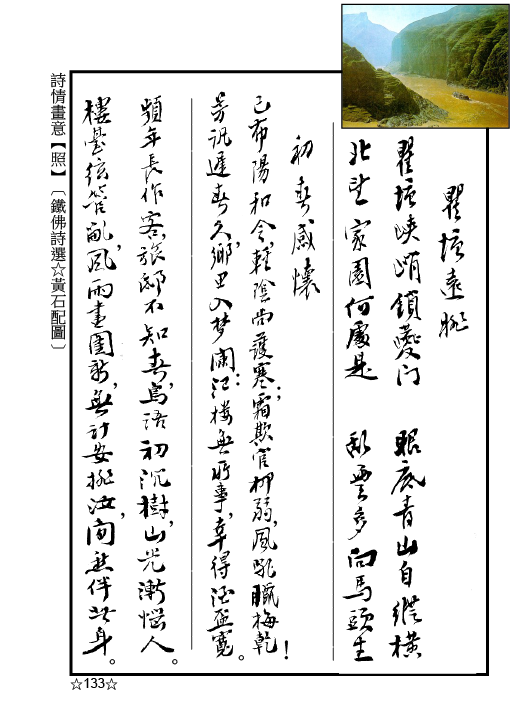 瞿塘遠眺
瞿塘峽峭鎖夔门 眼底青山自縱橫
北望家園何處是 亂雲多向馬頭生
初春感懷
已布陽和令,輕陰尚護寒;霜欺官柳弱,風臘梅乾!
芳訊遲春久,鄉里入梦闌;江樓無所事,幸得酒盃寬。
頻年長作客,旅邸不知春,鳥語初沉樹,山光漸惱人。
樓臺絃管亂,風雨畫圖新,無計安排汝,伴此身。
詩情畫意【照】〔鐵佛詩選☆黃石配圖〕
☆133☆